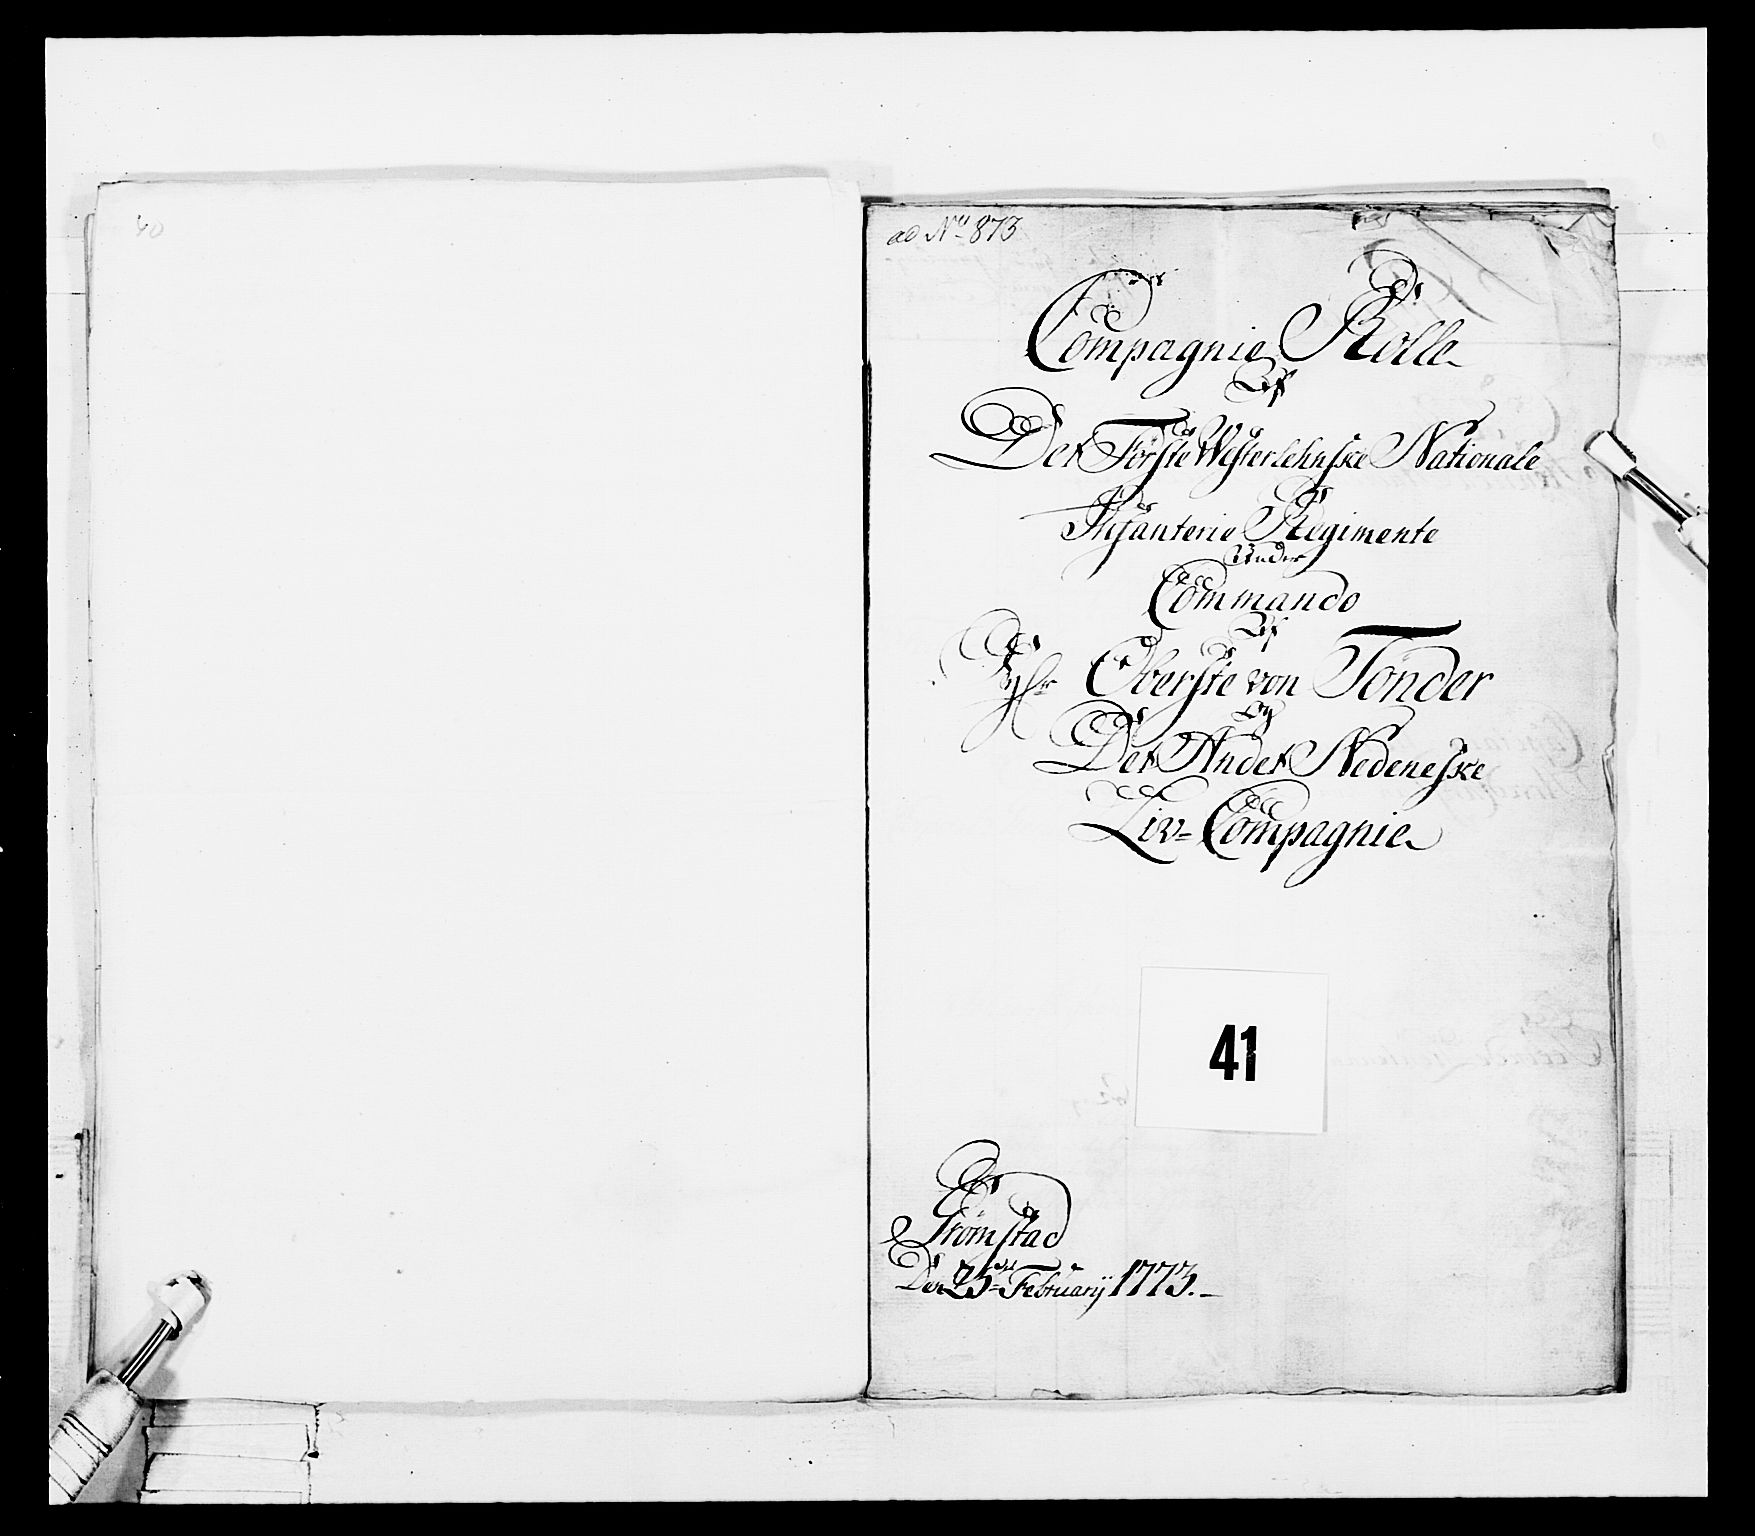 ad No 873
Compagnie Rolle
Af
Det Förste Westerlehnske Nationale
Infanterie Regimente
Under
Commando
Af
Hr Oberste von Tönder
Og
Det Andet Nedeneske
Liv-Compagnie
41
Grömstad
Den 25de Februarij 1773.